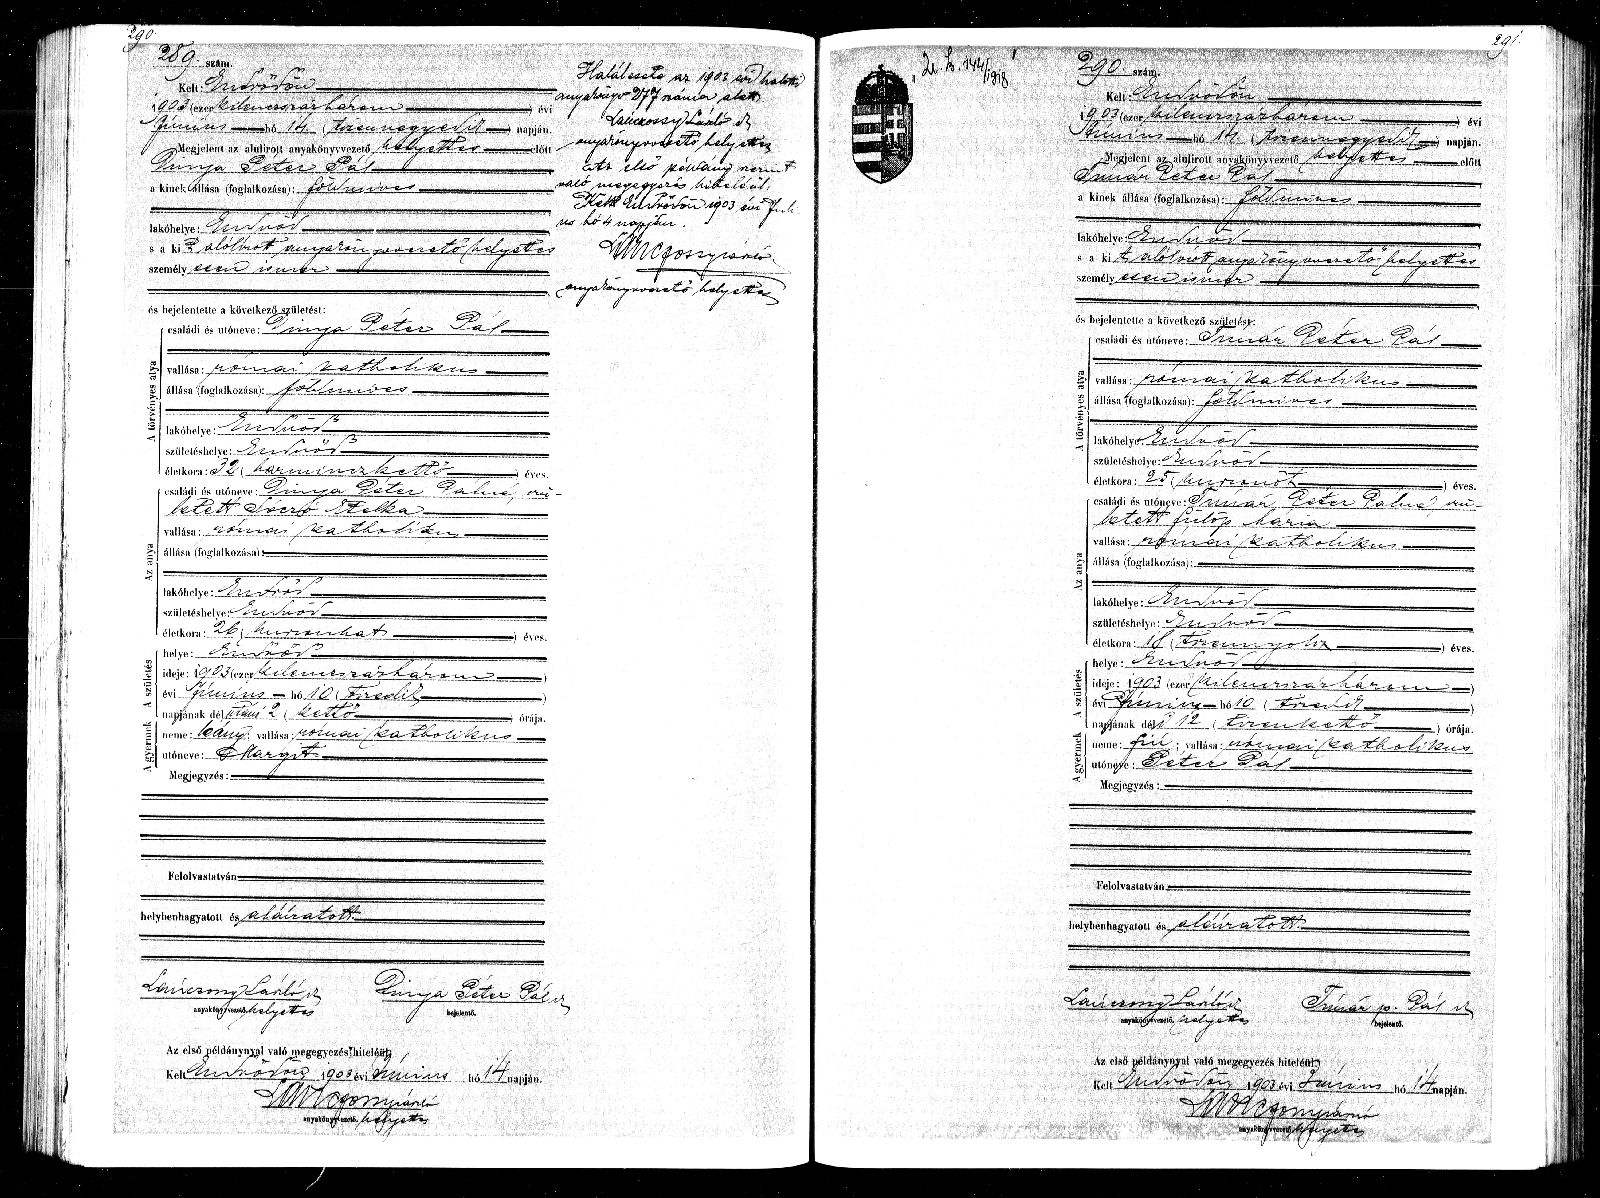 290.
289. szám.
Kelt: Endrődön
1903 (ezer kilenczszázhárom) évi
Június hó 14. (tizennegyedik) napján.
Megjelent az alulirott anyakönyvvezető helyettes előtt
Dinya Péter Pál
a kinek állása (foglalkozása): földmives
lakóhelye: Endrőd
s a kit alólirott anyakönyvvezető helyettes
személyesen ismer
és bejelentette a következő születést:
A törvényes atya
családi és utóneve: Dinya Péter Pál
vallása: római katholikus
állása (foglalkozása): földmives
lakóhelye: Endrőd
születéshelye: Endrőd
életkora: 32 (harminczkettő) éves.
Az anya
családi és utóneve: Dinya Péter Pálné, szü-
letett Etelka
vallása: római katholikus
állása (foglalkozása):
lakóhelye: Endrőd
születéshelye: Endrőd
életkora: 26 (huszonhat) éves.
A születés
helye: Endrőd
ideje: 1903 (ezer kilenczszázhárom)
évi Június hó 10 (tizedik)
napjának dél utáni 2 (kettő) órája.
A gyermek
neme: leány; vallása: római katholikus
utóneve: Margit
Megjegyzés:
Felolvastatván
helybenhagyatott és aláiratott.
Lánczossy László
anyakönyvvezető. helyettes
Dinya Péter Pál
bejelentő.
Az első példánynyal való megegyezés hiteléül:
Kelt Endrődön, 1903 évi Június hó 14 napján.
Lánczossy László
anyakönyvvezető. helyettes
Halálesete az 1903 évi halotti
anyakönyv 277 száma alatt
Lánczossy László
anyakönyvvezető helyettes
Az első példány szerint
való megegyezés hiteléül.
Kelt Endrődön 1903 évi Juli-
us hó 4 napján.
Lánczossy László
anyakönyvvezető helyettes
291.
290 szám.
Kelt: Endrődön
1903 (ezer kilenczszázhárom) évi
Június hó 14. (tizennegyedik) napján.
Megjelent az alulirott anyakönyvvezető helyettes előtt
Tímár Péter Pál
a kinek állása (foglalkozása): földmives
lakóhelye: Endrőd
s a kit alólirott anyakönyvvezető helyettes
személyesen ismer
és bejelentette a következő születést:
A törvényes atya
családi és utóneve: Tímár Péter Pál
vallása: római katholikus
állása (foglalkozása): földmives
lakóhelye: Endrőd
születéshelye: Endrőd
életkora: 25 (huszonöt) éves.
Az anya
családi és utóneve: Tímár Péter Pálné, szü-
letett Fülöp Mária
vallása: római katholikus
állása (foglalkozása):
lakóhelye: Endrőd
születéshelye: Endrőd
életkora: 18 (tizennyolcz) éves.
A születés
helye: Endrőd
ideje: 1903 (ezer kilenczszázhárom)
évi Június hó 10 (tizedik)
napjának dél i 12 (tizenkettő) órája.
A gyermek
neme: fiú; vallása: római katholikus
utóneve: Péter Pál
Megjegyzés:
Felolvastatván
helybenhagyatott és aláiratott.
Lánczossy László
anyakönyvvezető. helyettes
Tímár p. Pál
bejelentő.
Az első példánynyal való megegyezés hiteléül:
Kelt Endrődön, 1903 évi Június hó 14 napján.
Lánczossy László
anyakönyvvezető. helyettes